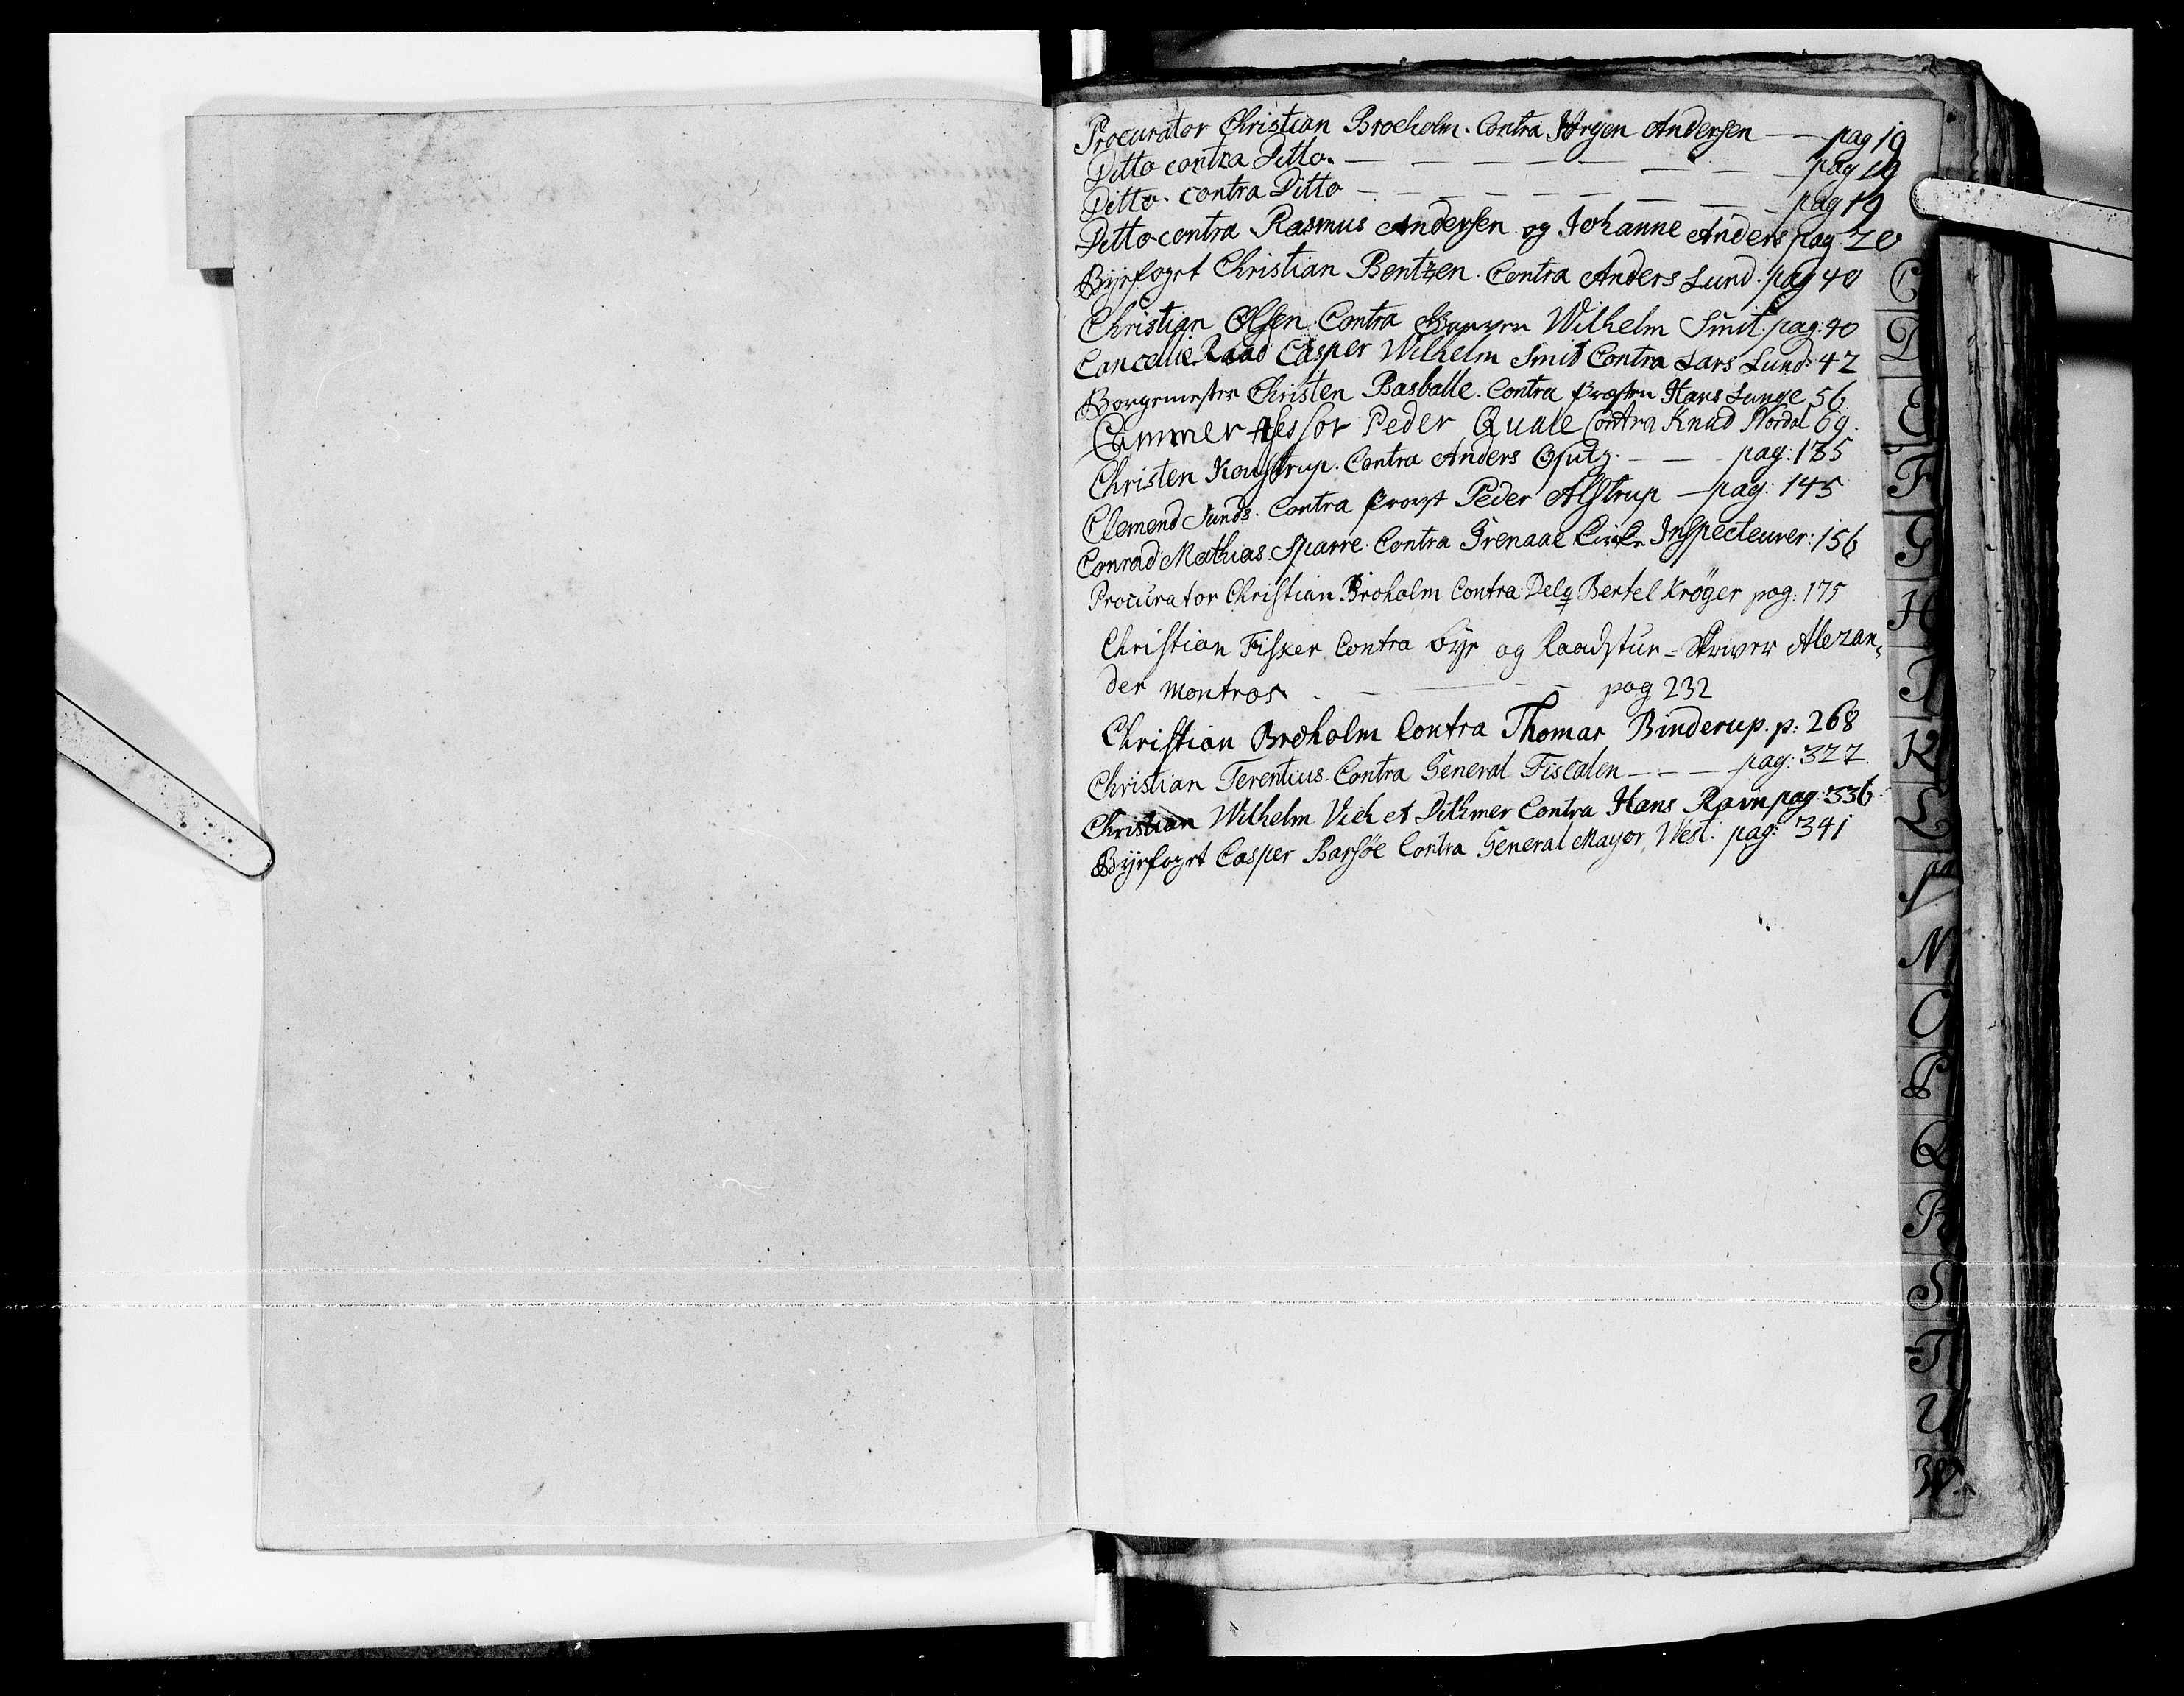 Procurator Christian Broeholm. Contra Jörgen Andersen — — pag 19
Ditto contra Ditto. — — — — — — — — pag 19
Ditto. contra Ditto — — — — — — — — pag 19
Ditto contra Rasmus Andersen og Johanne Anders pag 20
Byefoget Christian Bentzen. Contra Anders Lund. pag 40
Christian Olsen. Contra Wilhelm Smit. pag: 40
Cancellie Raad Casper Wilhelm Smit Contra Lars Lund: 42
Borgemester Christen Basballe. Contra Præsten Hans Lunge 56
Cammer Assessor Peder Quale Contra Knud Nordal 69.
Christen Contra Anders — — pag: 135
Clemend Sunds. Contra Provst Peder Alstrup — pag: 145
Conrad Mathias Sparre. Contra Grenaae Kirke Inspecteurer: 156
Procurator Christian Broholm Contra Delq Bertel Kröger pag: 175
Christian Fisker Contra Bye og Raadstue = Skriver Alexan,
der montros. — — — — pag 232
Christian Broholm Contra Thomas Binderup. p: 268
Christian Terentius. Contra General Fiscalen — — — pag: 322.
Christian Wilhelm Vieh et Dithmer Contra Hans Ravn pag: 336
Byefoget Casper Barsöe Contra General Mayor West. pag: 341
C
D
E
F
G
H
I
K
L
M
N
O
P
Q
R
S
T
U
W.